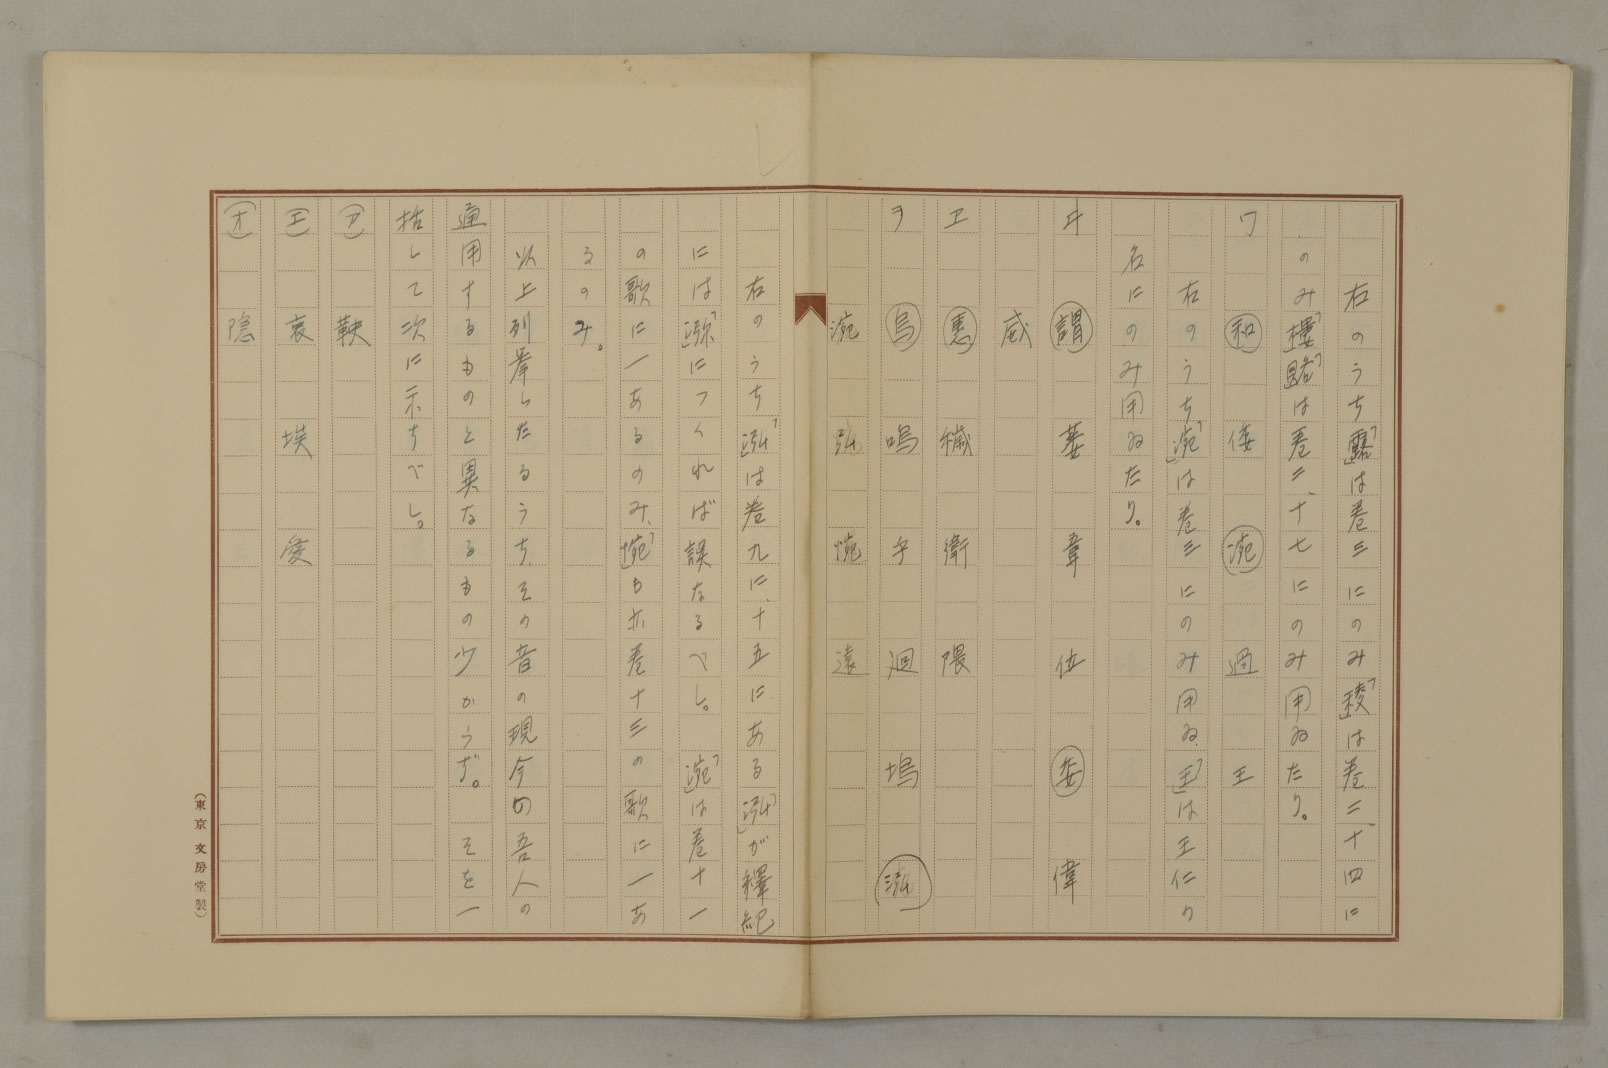 右のうち「露」は巻三にのみ「稜」は巻二、十四に
のみ「樓」「魯」は巻二、十七にのみ用ゐたり。
ワ 和 倭 涴 過 王
右のうち「涴」は巻三にのみ用ゐ、「王」は王仁の
名にのみ用ゐたり。
ヰ 謂 萎 韋 位 委 偉
威
ヱ 恵 穢 衛 隈
ヲ 烏 嗚 乎 廻 塢
弘 惋 遠
右のうち「泓」は巻九に、十五にある「泓」が釋紀
には「」につくれば誤なるべし。「涴」は巻十一
の歌に一あるのみ、「惋」も亦巻十三の歌に一あ
るのみ。
以上列挙したるうち、その音の現今の吾人の
通用するものと異なるもの少からず。そを一
括して次に示すべし。
(ア) 鞅
(エ) 哀 埃 愛
(オ) 隠
(東京文房堂製)